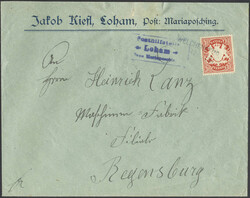 Jakob Kiefl, Loham, Post: Mariaposching.
Loham
An
Herrn Heinrich Lanz
Maschinen Fabrik
Filiale
Regensburg